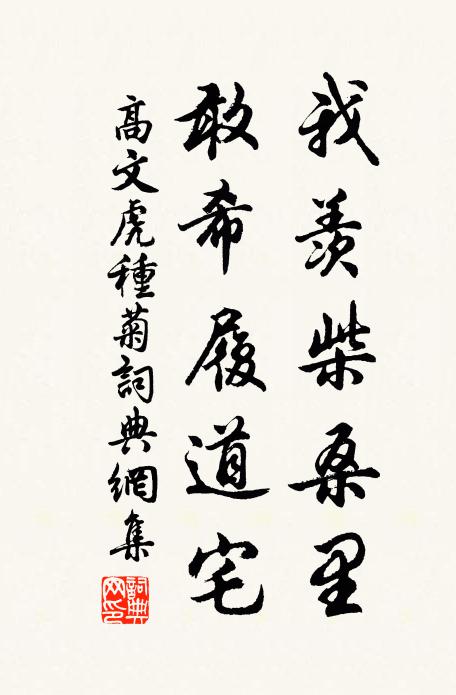 我羨柴桑里
敢希履道宅
高文虎種菊詞典網集
詞典網印